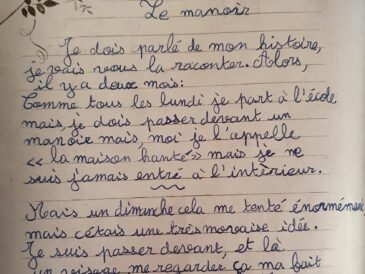 Le manoir
Je dois parlé de mon histoire,
je vais vous la raconter. Alors,
il y a deux mois:
Comme tous les lundi je part à l'école
mais, je dois passer devant un
manoir mais moi je l'appelle
« la maison hanté » mais je ne
suis jamais entré à l'intérieur.
Mais un dimanche cela me tenté énormément
mais c'étais une très mauvaise idée.
Je suis passer devant, et là
un visage me regarder ça ma fait